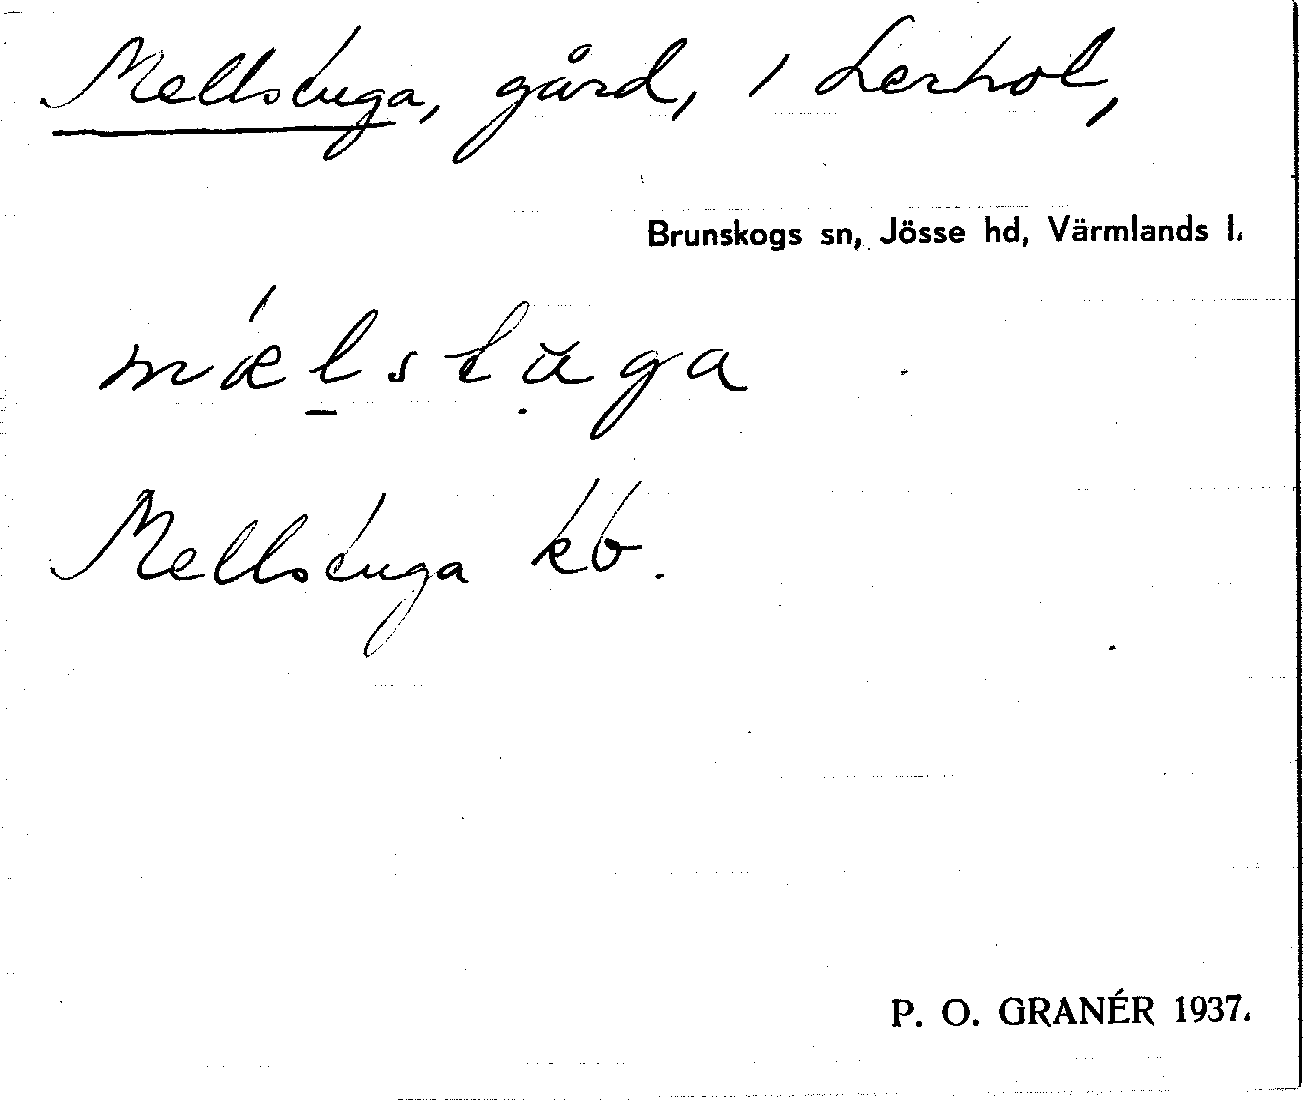 Mellstuga, gård, i Lerhol,
Brunskogs sn, Jösse hd, Värmlands l.
mǽl̠stụ̆ga
Mellstuga kb.
P. O. GRANÉR 1937.